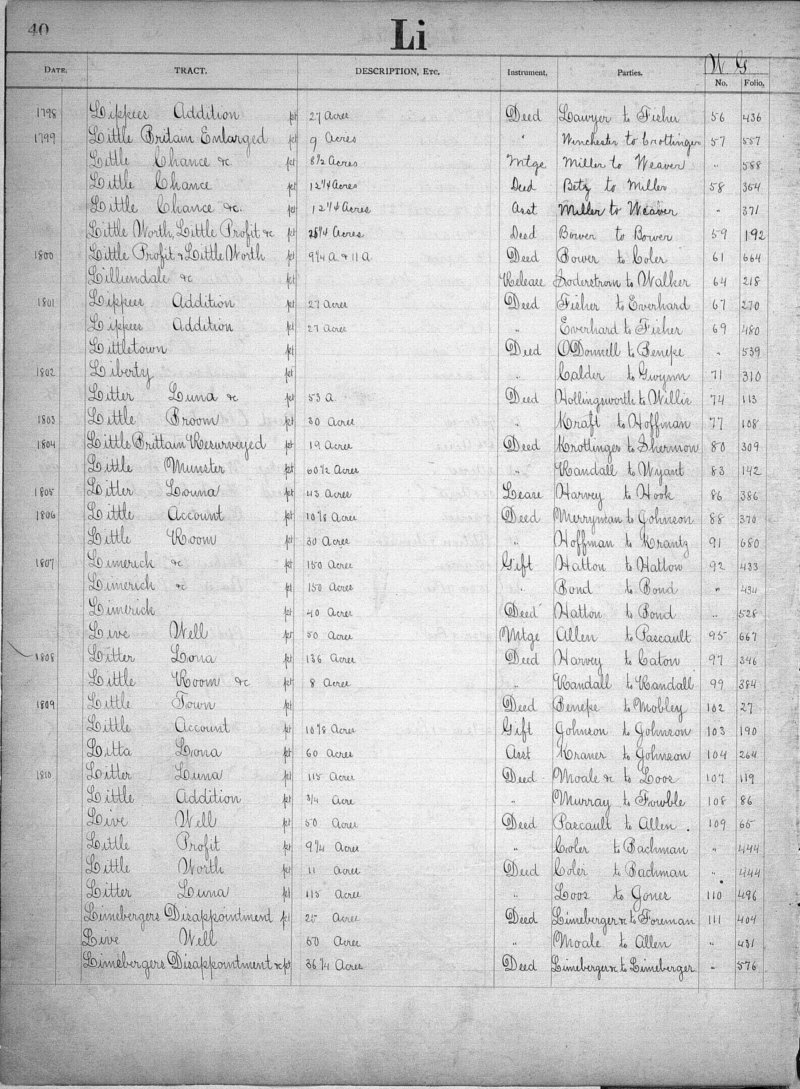 40
Li
W G
DATE. TRACT. DESCRIPTION, Etc, Instrument, Parties. No. Folio,
1798 Lippees Addition pt 27 Acres Deed Lawyer to Fisher 56 436
1799 Little Britain Enlarged pt 9 Acres " Winchester to Crottinger 57 557
Little Chance &c pt 8½ Acres Mtge Miller to Weaver " 588
Little Chance pt 12¼ Acres Deed Betz to Miller 58 364
Little Chance &c. pt 12¼ Acres Asst Miller to Weaver " 371
Little Worth, Little Profit &c pt Acres Deed Bower to Bower 59 192
1800 Little Profit & Little Worth pt 9¼ A & 11 A Deed Bower to Coler 61 664
Lilliendale &c pt Release Soderstrom to Walker 64 218
1801 Lippees Addition pt 27 Acres Deed Fisher to Everhard 67 270
Lippees Addition pt 27 Acres " Everhard to Fisher 69 480
Littletown pt Deed O'Donnell to Benepe " 539
1802 Liberty pt " Calder to Gwynn 71 310
Litter Luna &c pt 53 A Deed Hollingsworth to Willis 74 113
1803 Little Broom pt 30 Acres " Kraft to Hoffman 77 108
1804 Little Brittain Resurveyed pt 19 Acres Deed Krottinger to Shermon 80 309
Little Munster pt 60½ Acres " Randall to Wyant 83 142
1805 Litter Louna pt 43 Acres Lease Harvey to Hook 86 386
1806 Little Account pt 10⅞ Acres Deed Merryman to Johnson 88 370
Little Room pt 30 Acres " Hoffman to Krantz 91 680
1807 Limerick &c pt 150 Acres Gift Hatton to Hatton 92 433
Limerick &c pt 150 Acres " Bond to Bond " 434
Limerick pt 40 Acres Deed Hatton to Bond " 528
Live Well pt 50 Acres Mtge Allen to Pascault 95 667
1808 Litter Lona pt 136 Acres Deed Harvey to Caton 97 346
Little Room &c pt 8 Acres " Randall to Randall 99 384
1809 Little Town pt Deed Benepe to Mobley 102 27
Little Account pt 10⅞ Acres Gift Johnson to Johnson 103 190
Litta Lona pt 60 Acres Asst Kraner to Johnson 104 264
1810 Litter Luna pt 115 Acres Deed Moale &c to Loos 107 119
Little Addition pt ¾ Acre " Murray to Fowble 108 86
Live Well pt 50 Acres Deed Pascault to Allen . 109 65
Little Profit pt 9¼ Acres " Cooler to Bachman " 444
Little Worth pt 11 Acres Deed Coler to Bachman " 444
Litter Luna pt 115 Acres " Loos to Jones 110 496
Limebergers Disappointment pt 25 Acres Deed Limeberger &c to Foreman 111 404
Live Well 50 Acres " Moale to Allen " 431
Limebergers Disappointment &c pt 36¼ Acres Deed Limeberger &c to Limeberger " 576